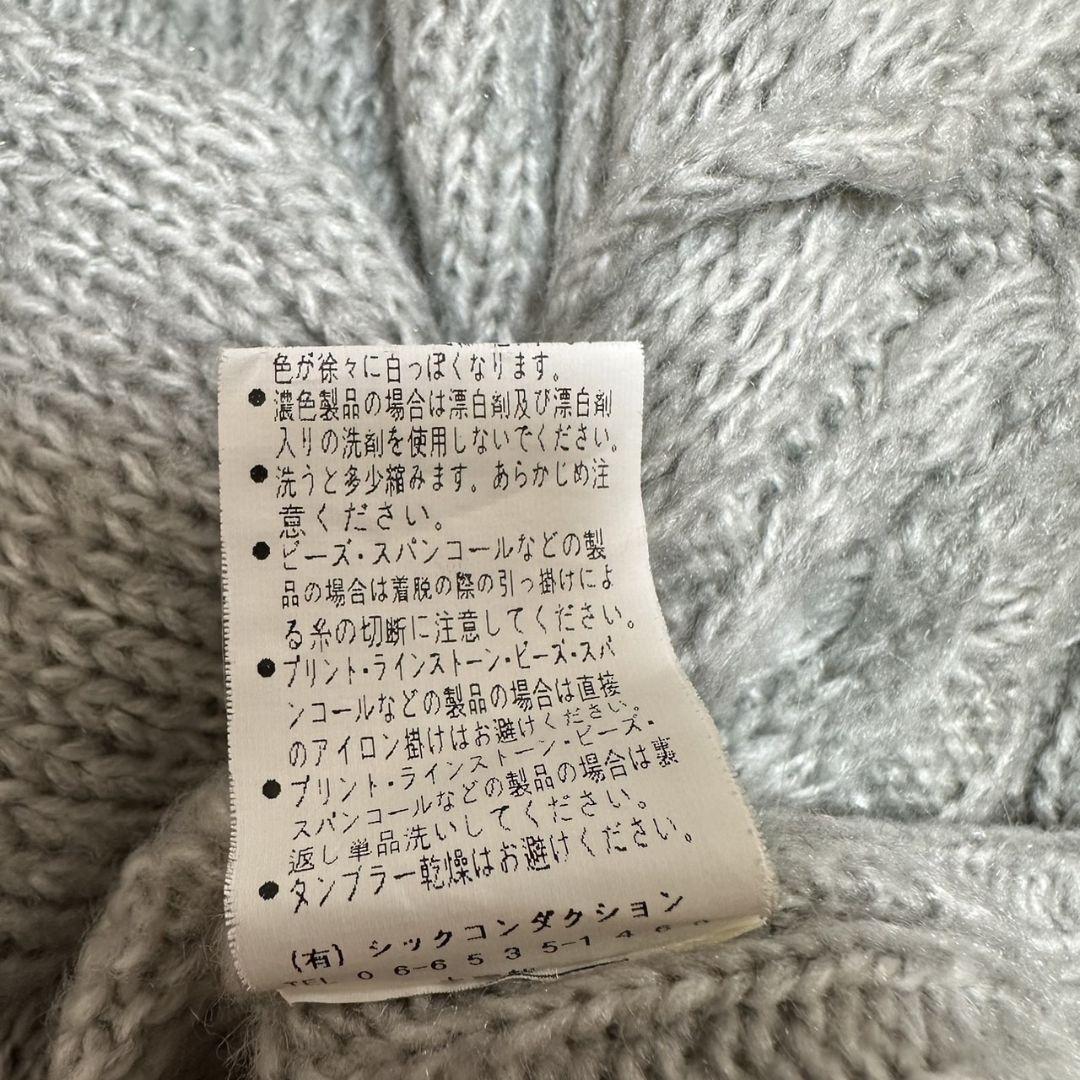 色が徐々に白っぽくなります。
●濃色製品の場合は漂白剤及び漂白剤
入りの洗剤を使用しないでください。
●洗うと多少縮みます。あらかじめ注
意ください。
●ビーズ・スパンコールなどの製
品の場合は着脱の際の引っ掛けによ
る糸の切断に注意してください。
●プリント・ラインストーン・ビーズ・スパ
ンコールなどの製品の場合は直接
のアイロン掛けはお避けください。
●プリント・ラインストーン・ビーズ・
スパンコールなどの製品の場合は裏
返し単品洗いしてください。
●タンブラー乾燥はお避けください。
(有)シックコンダクション
TEL 06-6535-146